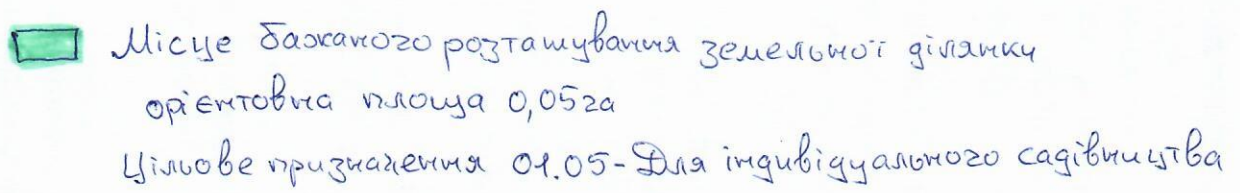 Місце бажаного розташування земельної ділянки
орієнтовна площа 0,05га
Цільове призначення 01.05-Для індивідуального садівництва